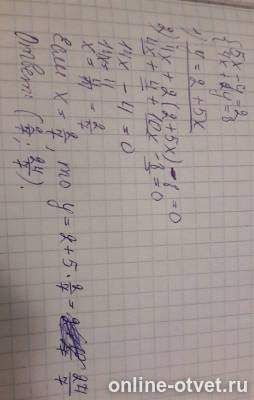 {5x - y = 2
4x + 2y = 8
1) y = 2 + 5x
2) 4x + 2(2 + 5x) - 8 = 0
4x + 4 + 10x - 8 = 0
14x - 4 = 0
14x = 4
x = 4/14 = 2/7
Если x = 2/7, то y = 2 + 5 · 2/7 = 24/7
Ответ: (2/7; 24/7).
online-otvet.ru